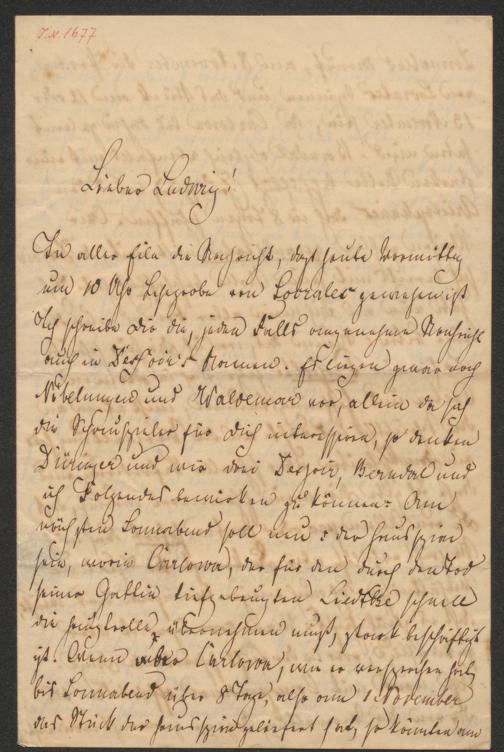 J.N. 1677
Lieber Ludwig!
In aller Eile die Nachricht, daß heute Vormittag
um 10 Uhr Leseprobe von Lovrales gewesen ist
Ich schreibe Dir die, jeden Falls angenehme Nachricht
auch in Dessoir's Namen. Es liegen zwar noch
Nibelungen und Waldemar vor, allein da sich
die Schauspieler für Dich interessiren, so denken
Düringer und wir drei Dessoir, Berndal und
ich Folgendes bewirken zu können: Am
nächsten Sonnabend soll neu: der Hausspion
sein, worin Carlowa, der für den durch den Tod
seiner Gattin tiefgebeugten Liedtke schnell
die Hauptrolle übernehmen muß, stark beschäftigt
ist. Wenn aber Carlowa, wie er versprochen hat,
bis Sonnabend über 8 Tage, also am 1 November
das Stück der Hausspion geliefert hat, so könnten am